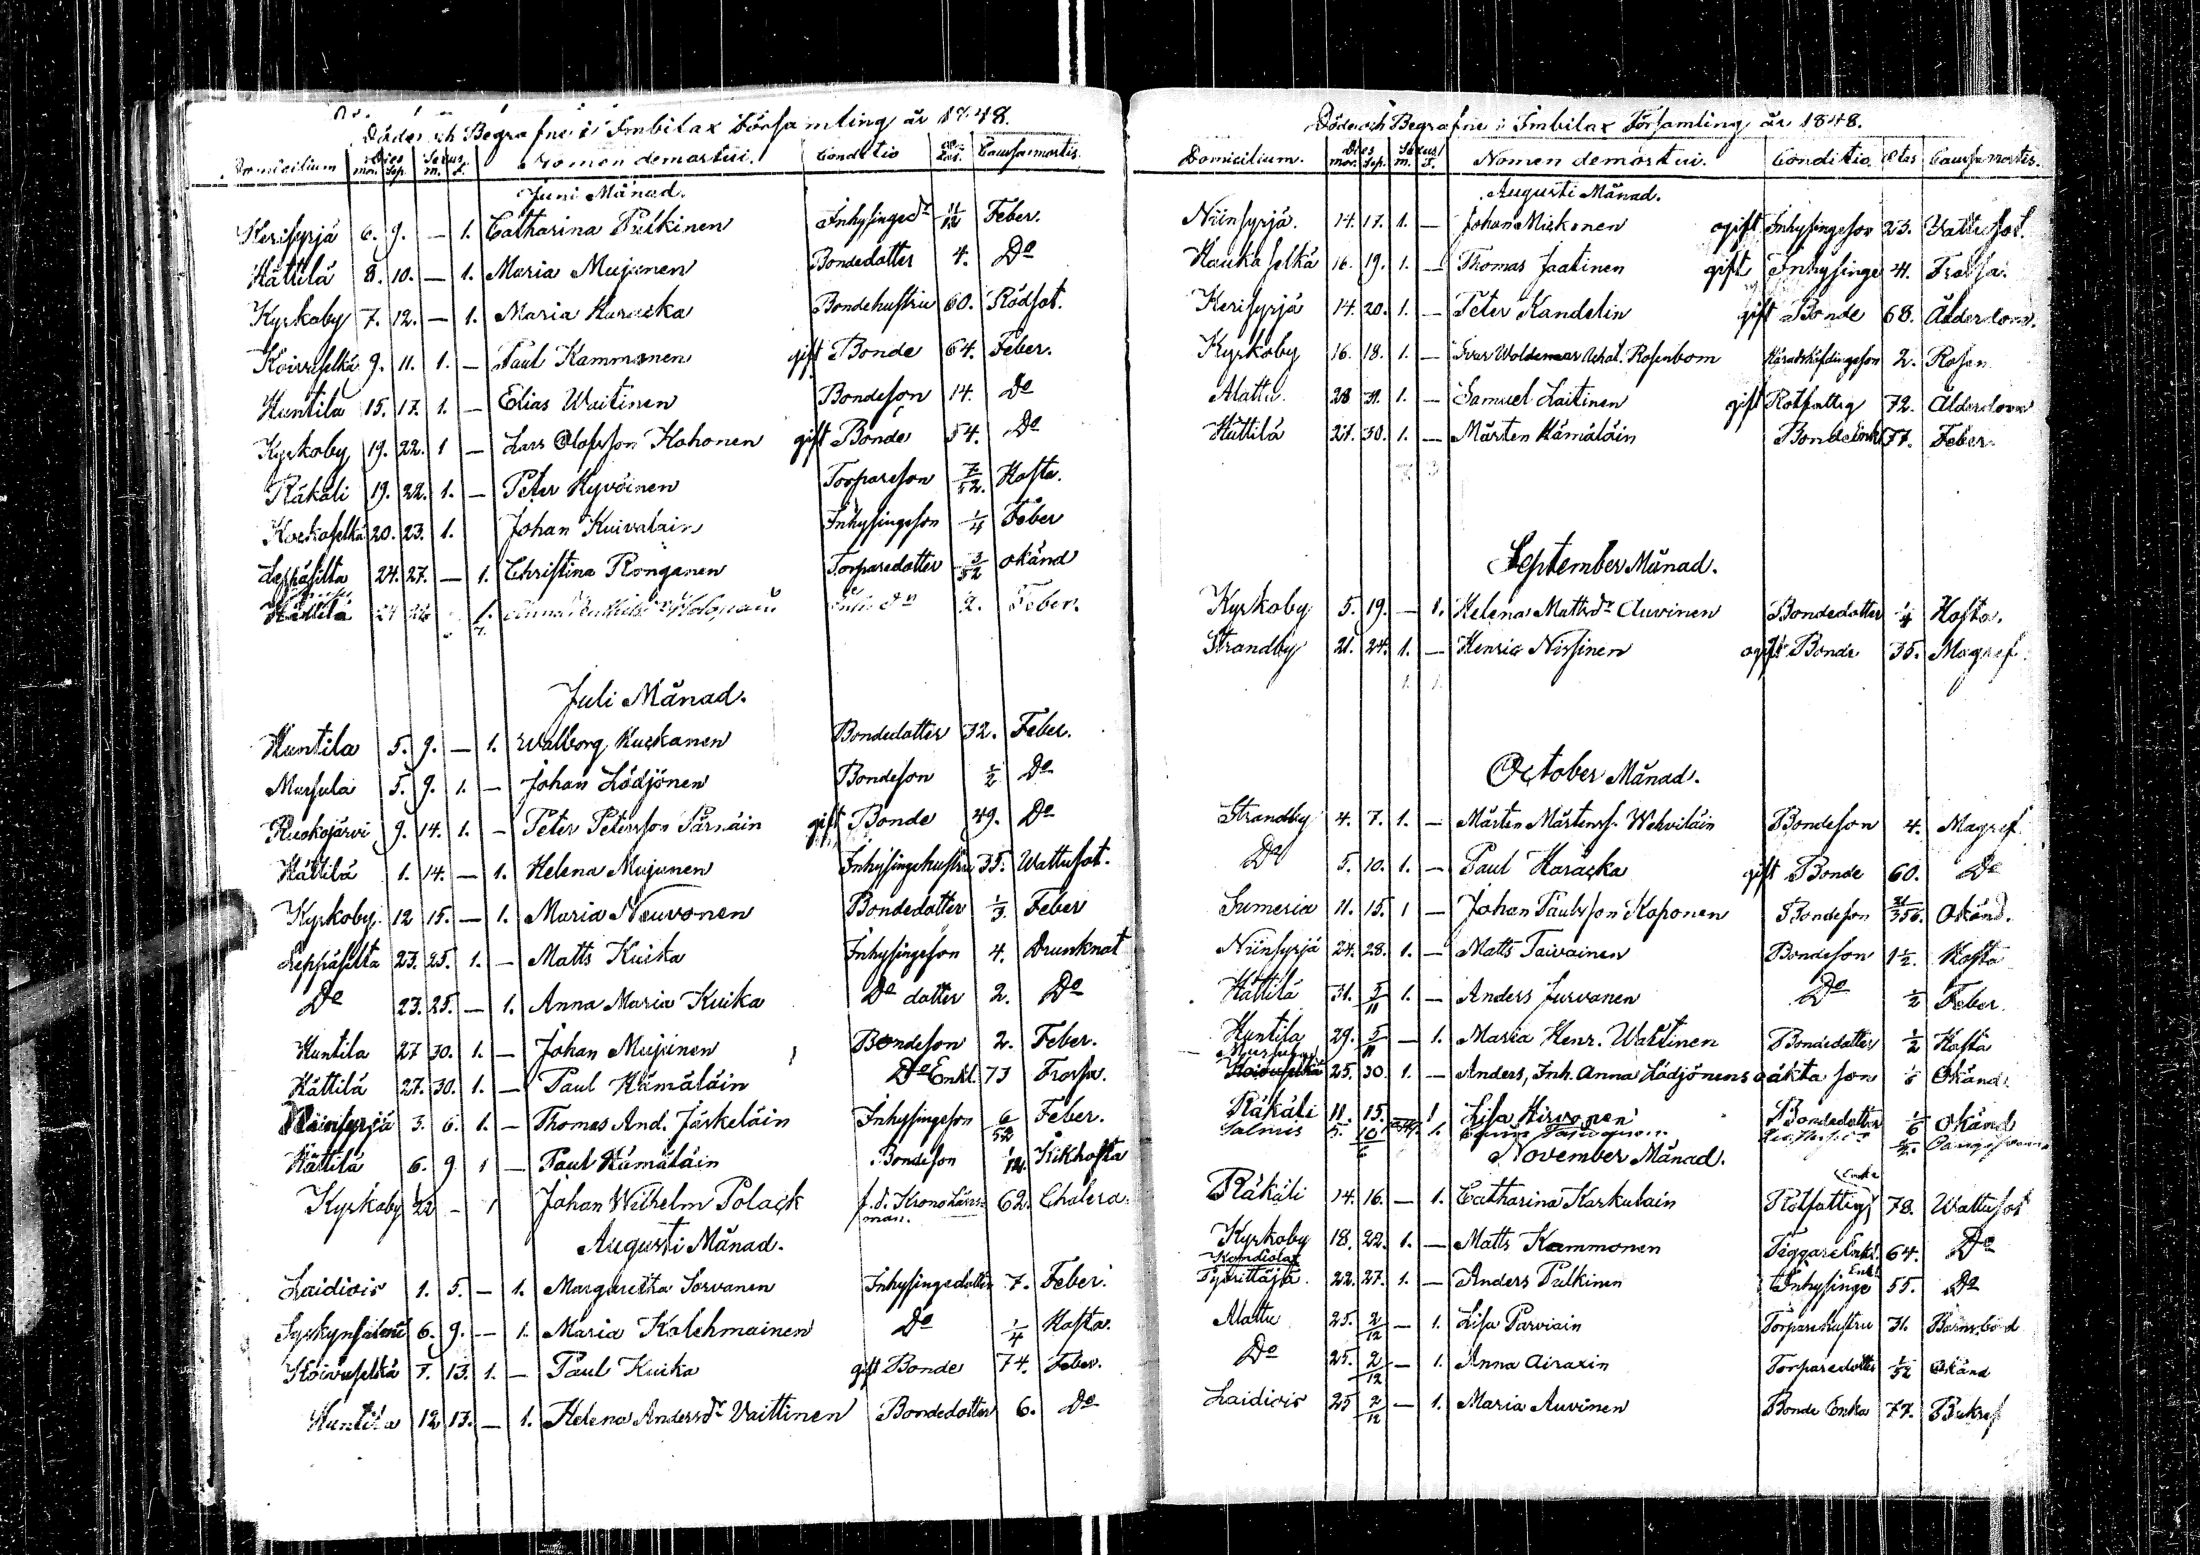 Döde och Begrafne i Imbilax Församling år 1848.
Domicilium Dies mor. Sep. Sexus m. F. Nomen demortui. Conditio Ætas. Caussa mortis.
Juni Månad.
Kerisyrjä 6. 9. — 1. Catharina Pulkinen Inhysingedr 11/12 Feber.
Hättilä 8. 10. — 1. Maria Mujunen Bondedotter 4. Do
Kyrkoby 7. 12. — 1. Maria Karaska Bondehustru 60. Rödsot.
Koivuselkä 9. 11. 1. — Paul Kammonen gift Bonde 64. Feber.
Huntila 15. 17. 1. — Elias Waitinen Bondeson 14. Do
Kyrkoby 19. 22. 1 — Lars Olofsson Hahonen gift Bonde 54. Do
Räkäli 19. 22. 1. — Peter Hyvöinen Torpareson 7/52. Hosta.
Koskoselkä 20. 23. 1. Johan Kuivalain Inhysingeson 1/4 Feber
Leppäsilta 24. 27. — 1. Christina Ronganen Torparedotter 3/52 okänd
Hättilä 24 26 1. Anna 2. Feber.
Juli Månad.
Huntila 5. 9. — 1. Walborg Kuskanen Bondedotter 32. Feber.
Mursula 5. 9. 1. — Johan Lödjönen Bondeson 1/2 Do
Ruokojärvi 9. 14. 1. — Peter Petersson Pärnäin gift Bonde 49. Do
Hättilä 1. 14. — 1. Helena Mujunen Inhysingehustru 35. Wattusot.
Kyrkoby. 12 15. — 1. Maria Neuvonen Bondedotter 1/3. Feber
Leppäsilta 23. 25. 1. — Matts Kuika Inhysingeson 4. Drunknat
Do 23. 25. — 1. Anna Maria Kuika Do dotter 2. Do
Huntila 27 30. 1. — Johan Mujunen Bondeson 2. Feber.
Hättilä 27. 30. 1. — Paul Hämäläin Do Enkl. 73 Frossa.
Niinisyrjä 3. 6. 1. — Thomas And. Jäskeläin Inhysingeson 6/52 Feber.
Hättilä 6. 9 1 — Paul Hämäläin Bondeson 1/12. Kikhosta
Kyrkoby 22 — 1 Johan Wilhelm Polack f.d. Kronoläns-man. 62. Cholera.
Augusti Månad.
Laidiois 1. 5. — 1. Margaretha Sorvanen Inhysingedotter 7. Feber.
Syskynsalmi 6. 9. — 1. Maria Kalehmainen Do 1/4 Hosta.
Koivuselkä 7. 13. 1. — Paul Kuika gift Bonde 74. Feber.
Huntila 12 13. — 1. Helena Andersdr Vaittinen Bondedotter 6. Do
Döde och Begrafne i Imbilax Församling år 1848.
Domicilium. Dies mor. Sep. Sexus m. F. Nomen demortui. Conditio Ætas Caussa mortis.
Augusti Månad.
Niinisyrjä. 14. 17. 1. — Johan Miskonen ogift Inhysingeson 23. Vattusot.
Haukaselkä 16. 19. 1. — Thomas Jaatinen gift Inhysinge 41. Frossa.
Kerisyrjä 14. 20. 1. — Peter Kandelin gift Bonde 68. Ålderdom.
Kyrkoby 16. 18. 1. — Ivar Woldemar Achat. Rosenbom Häradshöfdingeson 2. Rosen
Alattu. 28 31. 1. — Samuel Laitinen gift Rotfattig 72. Ålderdom
Hättilä 27. 30. 1. — Mårten Hämäläin Bonde Enkl 77. Feber.
September Månad.
Kyrkoby 5. 19. — 1. Helena Mattsdr Auvinen Bondedotter 1/4 Hosta.
Strandby 21. 24. 1. — Henric Nissinen ogift Bonde 35. Magref.
October Månad.
Strandby 4. 7. 1. — Mårten Mårtenss. Wehviläin Bondeson 4. Magref
Do 5. 10. 1. — Paul Karaska gift Bonde 60. Do
Sumeria 11. 15. 1 — Johan Paulsson Koponen Bondeson Okänd.
Niinisyrjä 24. 28. 1. — Matts Taivainen Bondeson 1 1/2. Hosta
Hättilä 31. 5/11 1. — Anders Jurvanen Do 1/2 Feber.
Huntila 29. 5/11 — 1. Maria Henr. Waittinen Bondedotter 1/2 Hosta
Mursula 25. 30. 1. — Anders, Inh. Anna Lödjönens oäkta son 1/6 Okänd.
Räkäli 11. 15. 1 Lisa Hirvonen Bondedotter 1/6 Okänd
Salmis 5. 10 1.
November Månad.
Räkäli 14. 16. — 1. Catharina Karkulain Rotfattig Enka 78. Wattusot
Kyrkoby 18. 22. 1. — Matts Kammonen Tiggare Enkl. 64. Do
Kondiolax
Tykrittäjä 22. 27. 1. — Anders Pulkinen Inhysinge Enkl 55. Do
Alattu 25. 2/12 — 1. Lisa Parviain Torparehustru 31. Barnsbörd
Do 25. 2/12 — 1. Anna Airaxin Torparedotter 1/52 Okänd
Laidiois 25 2/12 — 1. Maria Auvinen Bonde Enka 77. Bukref